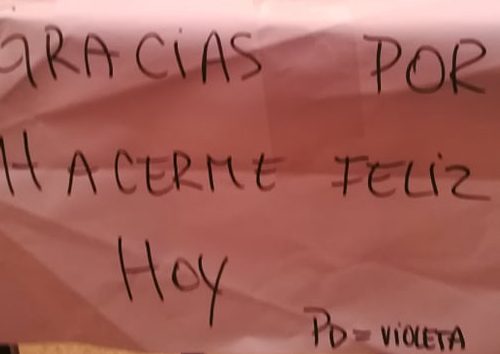 GRACiAS POR
HACERME FELiZ
HOY
PD = ViOLETA